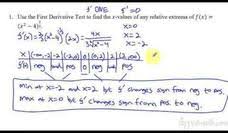 f' DNE f'=0
1. Use the First Derivative Test to find the x-values of any relative extrema of f(x) =
(x²-4)^2/3. x=0
f'(x)=2/3(x²-4)^-1/3(2x) = 4x / 3∛x²-4 x=2
x=-2
x | (-∞,-2) | (-2,0) | (0,2) | (2,∞)
f'(x) | neg | pos | neg | pos
min at x=-2 and x=2 b/c f' changes sign from neg to pos.
max at x=0 b/c f' changes sign from pos to neg.